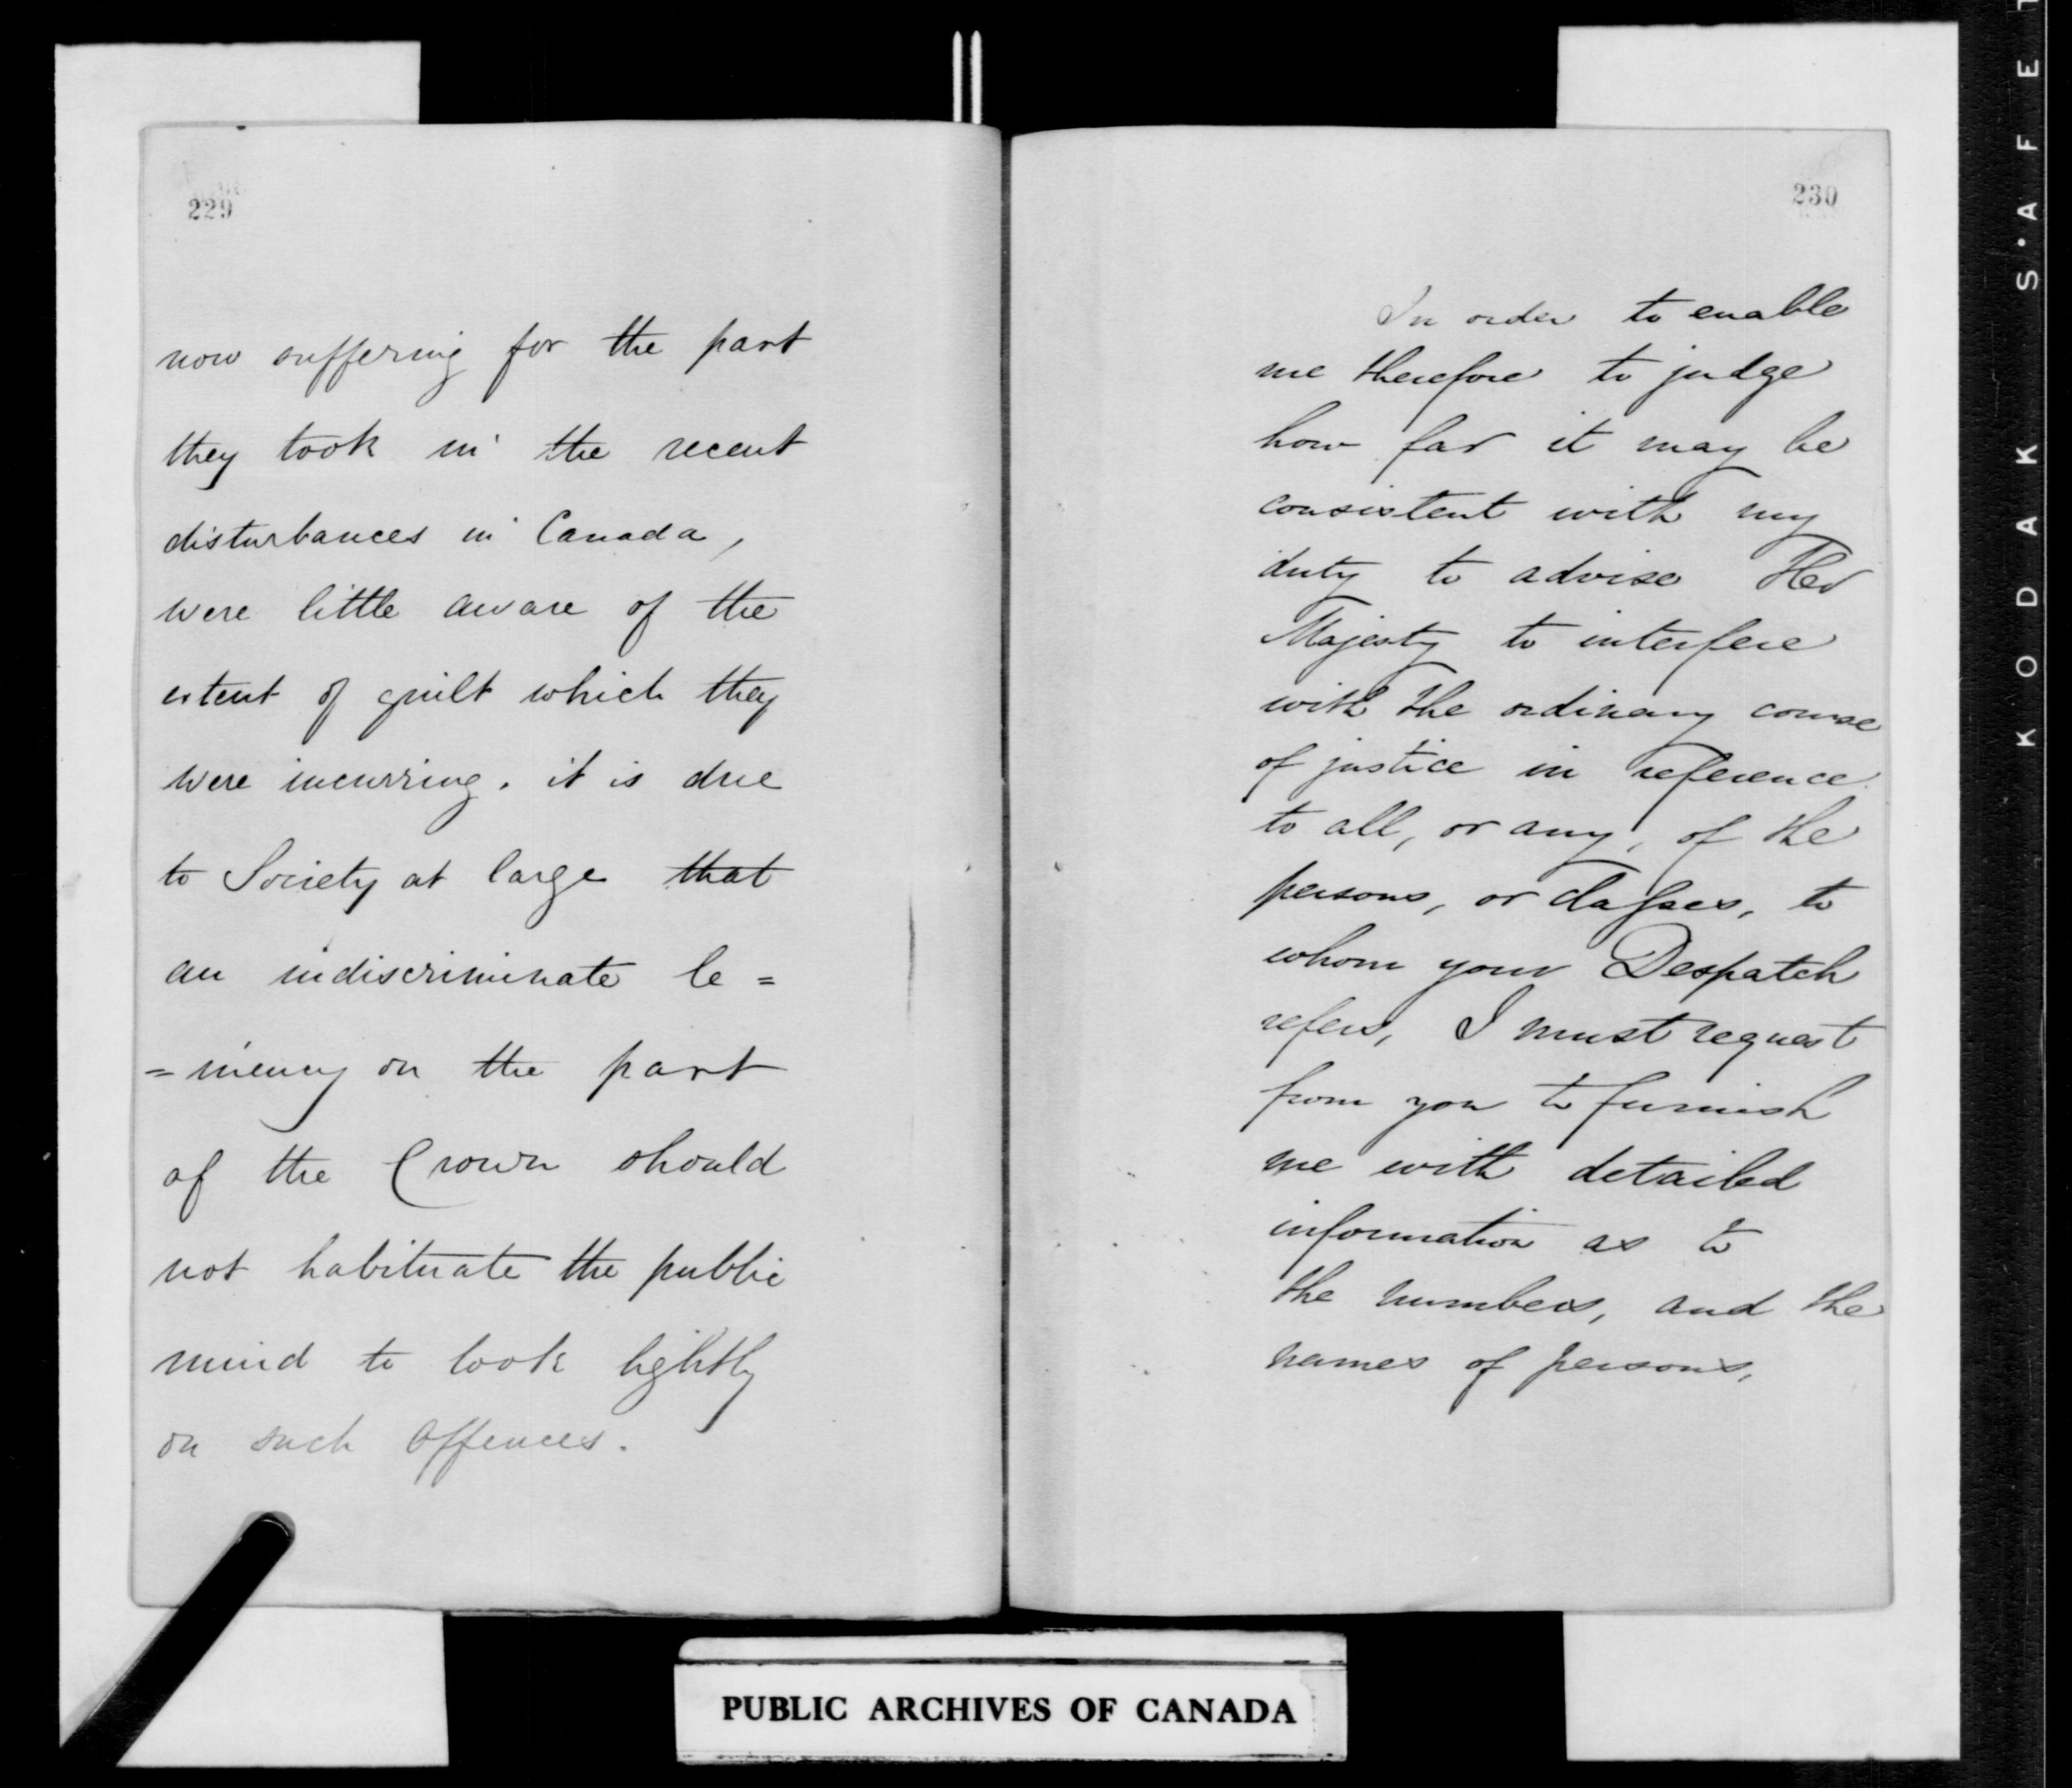 229
now suffering for the part
they took in the recent
disturbances in Canada,
were little aware of the
extent of guilt which they
were incurring. it is due
to Society at large that
an indiscriminate le=
=niency on the part
of the Crown should
not habituate the public
mind to look lightly
on such offences.
230
In order to enable
me therefore to judge
how far it may be
consistent with my
duty to advise Her
Majesty to interfere
with the ordinary course
of justice in reference
to all, or any, of the
persons, or classes, to
whom your Despatch
refers, I must request
from you to furnish
me with detailed
information as to
the numbers, and the
names of persons,
PUBLIC ARCHIVES OF CANADA
KODAK S·AFET